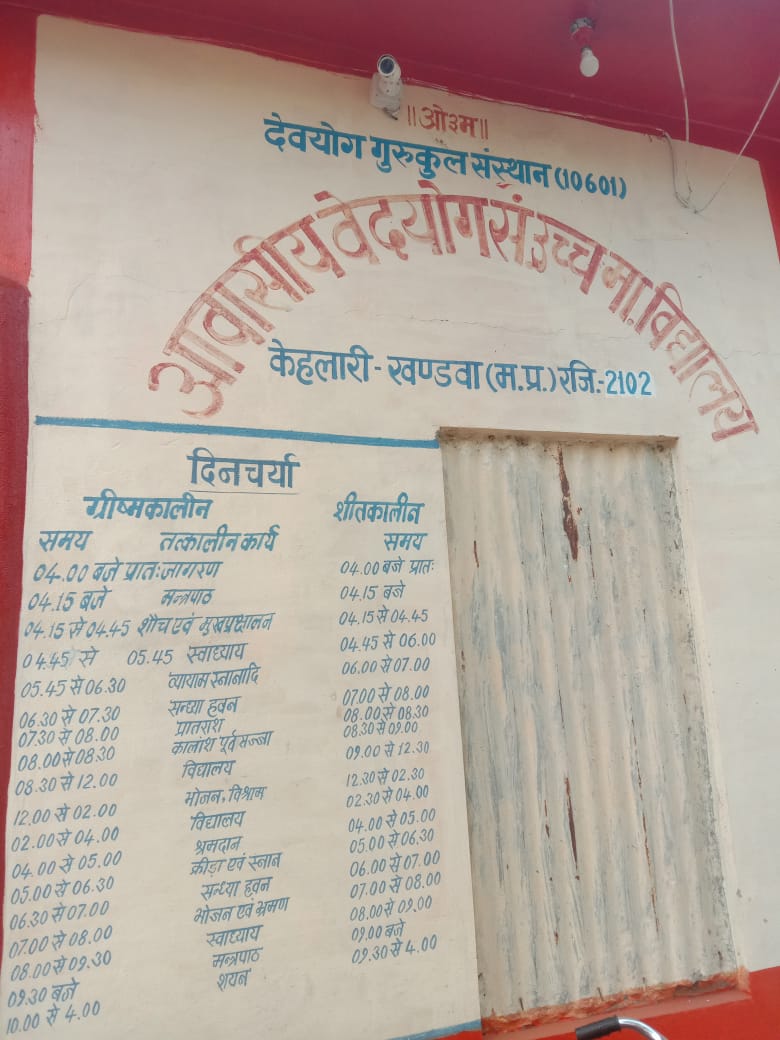 ॥ओ३म॥
देवयोग गुरुकुल संस्थान (10601)
आवासीय वेदयोग सं. उच्च मा. विद्यालय
केहलारी - खण्डवा (म.प्र.) रजि:- 2102
दिनचर्या
ग्रीष्मकालीन शीतकालीन
समय तत्कालीन कार्य समय
04.00 बजे प्रातः जागरण 04.00 बजे प्रातः
04.15 बजे मन्त्रपाठ 04.15 बजे
04.15 से 04.45 शौच एवं मुखप्रक्षालन 04.15 से 04.45
04.45 से 05.45 स्वाध्याय 04.45 से 06.00
05.45 से 06.30 व्यायाम स्नानादि 06.00 से 07.00
06.30 से 07.30 सन्ध्या हवन 07.00 से 08.00
07.30 से 08.00 प्रातराश 08.00 से 08.30
08.00 से 08.30 कालांश पूर्व सज्जा 08.30 से 09.00
08.30 से 12.00 विद्यालय 09.00 से 12.30
12.00 से 02.00 भोजन, विश्राम 12.30 से 02.30
02.00 से 04.00 विद्यालय 02.30 से 04.00
04.00 से 05.00 श्रमदान 04.00 से 05.00
05.00 से 06.30 क्रीड़ा एवं स्नान 05.00 से 06.30
06.30 से 07.00 सन्ध्या हवन 06.00 से 07.00
07.00 से 08.00 भोजन एवं भ्रमण 07.00 से 08.00
08.00 से 09.30 स्वाध्याय 08.00 से 09.00
09.30 बजे मन्त्रपाठ 09.00 बजे
10.00 से 4.00 शयन 09.30 से 4.00